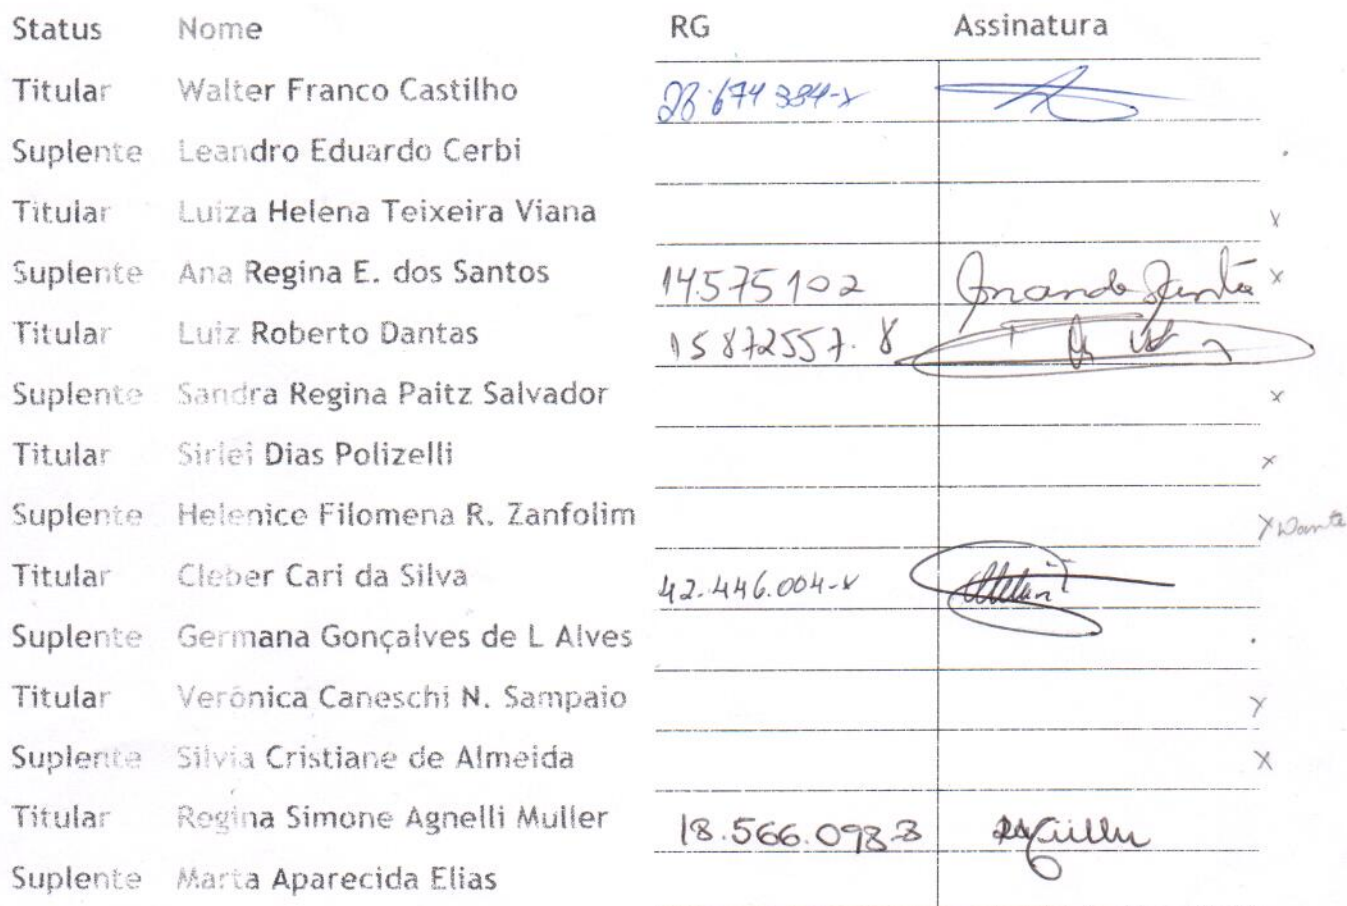 Status Nome RG Assinatura
Titular Walter Franco Castilho 28.674384-x
Suplente Leandro Eduardo Cerbi
Titular Luiza Helena Teixeira Viana x
Suplente Ana Regina E. dos Santos 14575102 x
Titular Luiz Roberto Dantas 15872557.8
Suplente Sandra Regina Paitz Salvador x
Titular Sirlei Dias Polizelli x
Suplente Helenice Filomena R. Zanfolim x
Titular Cleber Cari da Silva 42.446.004-x
Suplente Germana Gonçalves de L Alves
Titular Verônica Caneschi N. Sampaio x
Suplente Silvia Cristiane de Almeida x
Titular Regina Simone Agnelli Muller 18.566.098-3
Suplente Marta Aparecida Elias